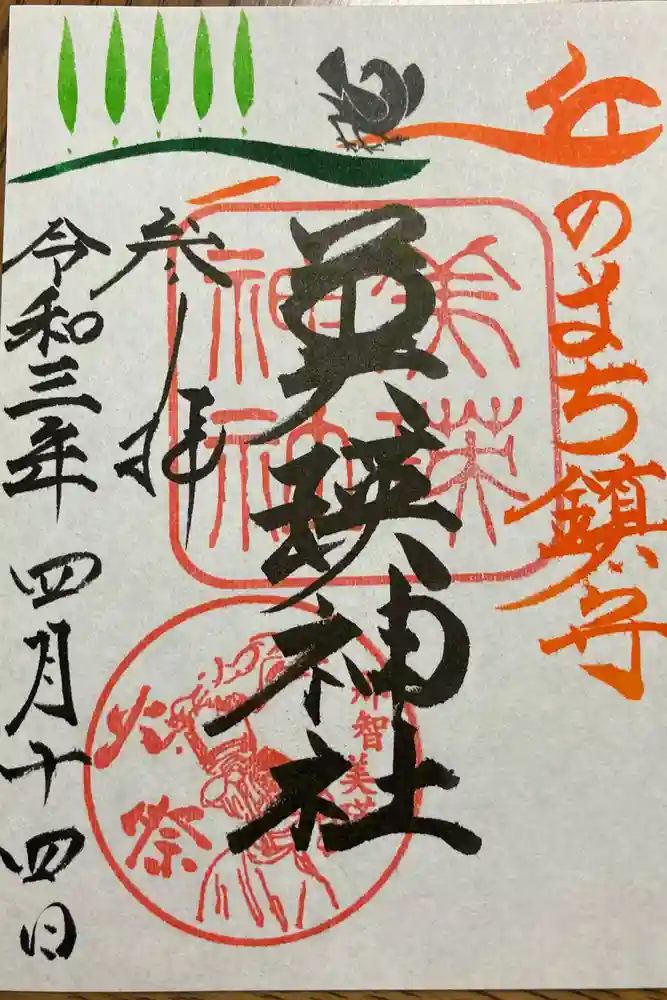 丘のまち鎮守
美瑛神社
参拝
令和三年 四月十四日
那智美瑛
火祭